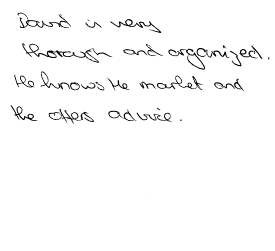 David is very
thorough and organized.
He knows the market and
the offers advice.